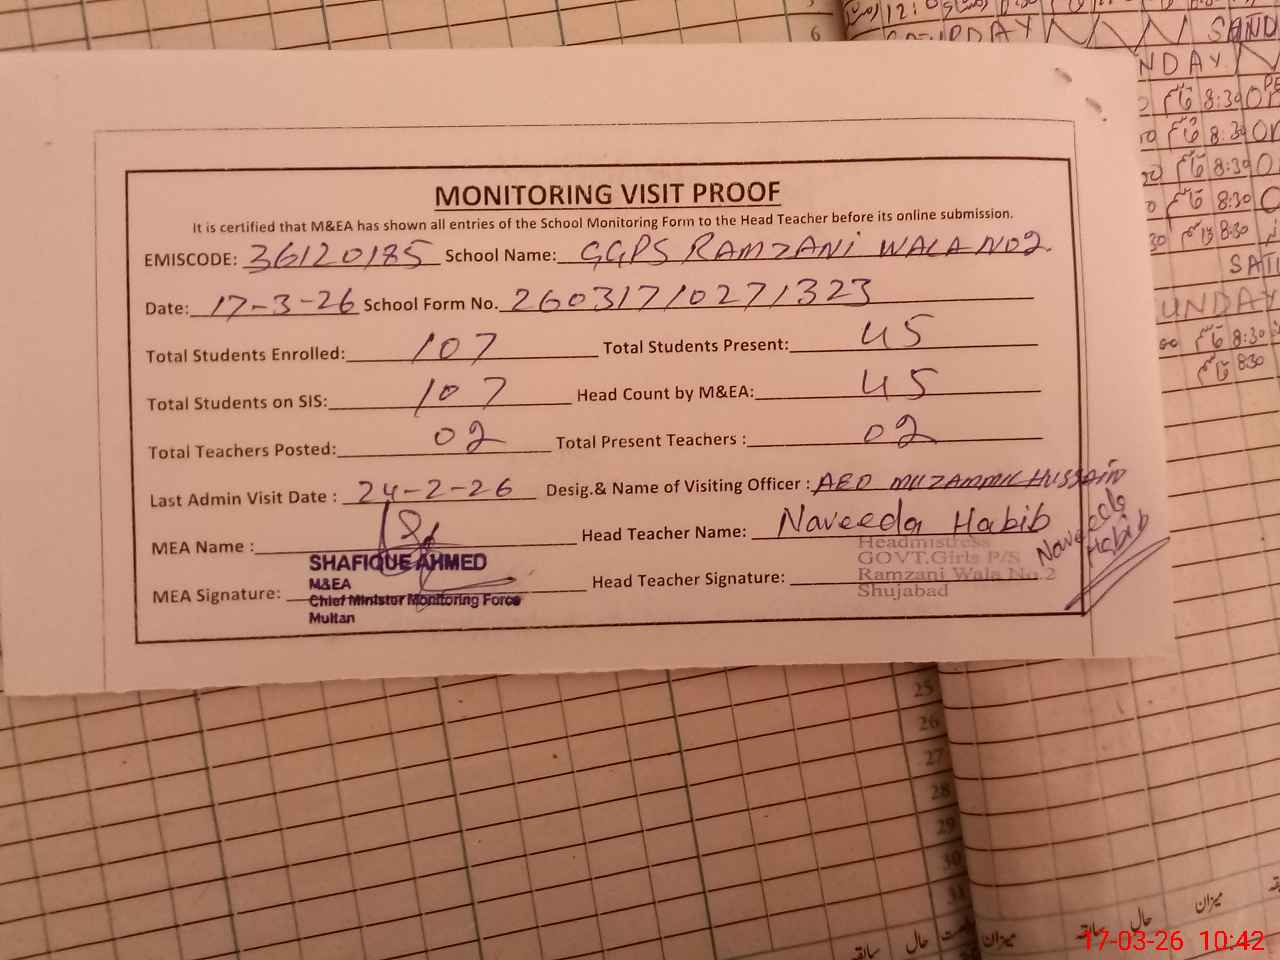 MONITORING VISIT PROOF
It is certified that M&EA has shown all entries of the School Monitoring Form to the Head Teacher before its online submission.
EMISCODE: 36120185 School Name: GGPS RAMZANI WALA NO2.
Date: 17-3-26 School Form No. 26031710271323
Total Students Enrolled: 107 Total Students Present: 45
Total Students on SIS: 107 Head Count by M&EA: 45
Total Teachers Posted: 02 Total Present Teachers : 02
Last Admin Visit Date : 24-2-26 Desig.& Name of Visiting Officer : AEO MUZAMMIL HUSSAIN
MEA Name : Head Teacher Name: Naveeda Habib
MEA Signature: Head Teacher Signature:
SHAFIQUE AHMED
M&EA
Chief Minister Monitoring Force
Multan
Headmistress
GOVT.Girls P/S
Ramzani Wala No.2
Shujabad
Naveeda
Habib
6
NDAY
8:30
8:30
8:30
8:30
8:30
UNDAY
8:30
830
25
26
27
28
29
30
31
میزان
حال
سابقہ
میزان
حال
سابقہ
17-03-26 10:42